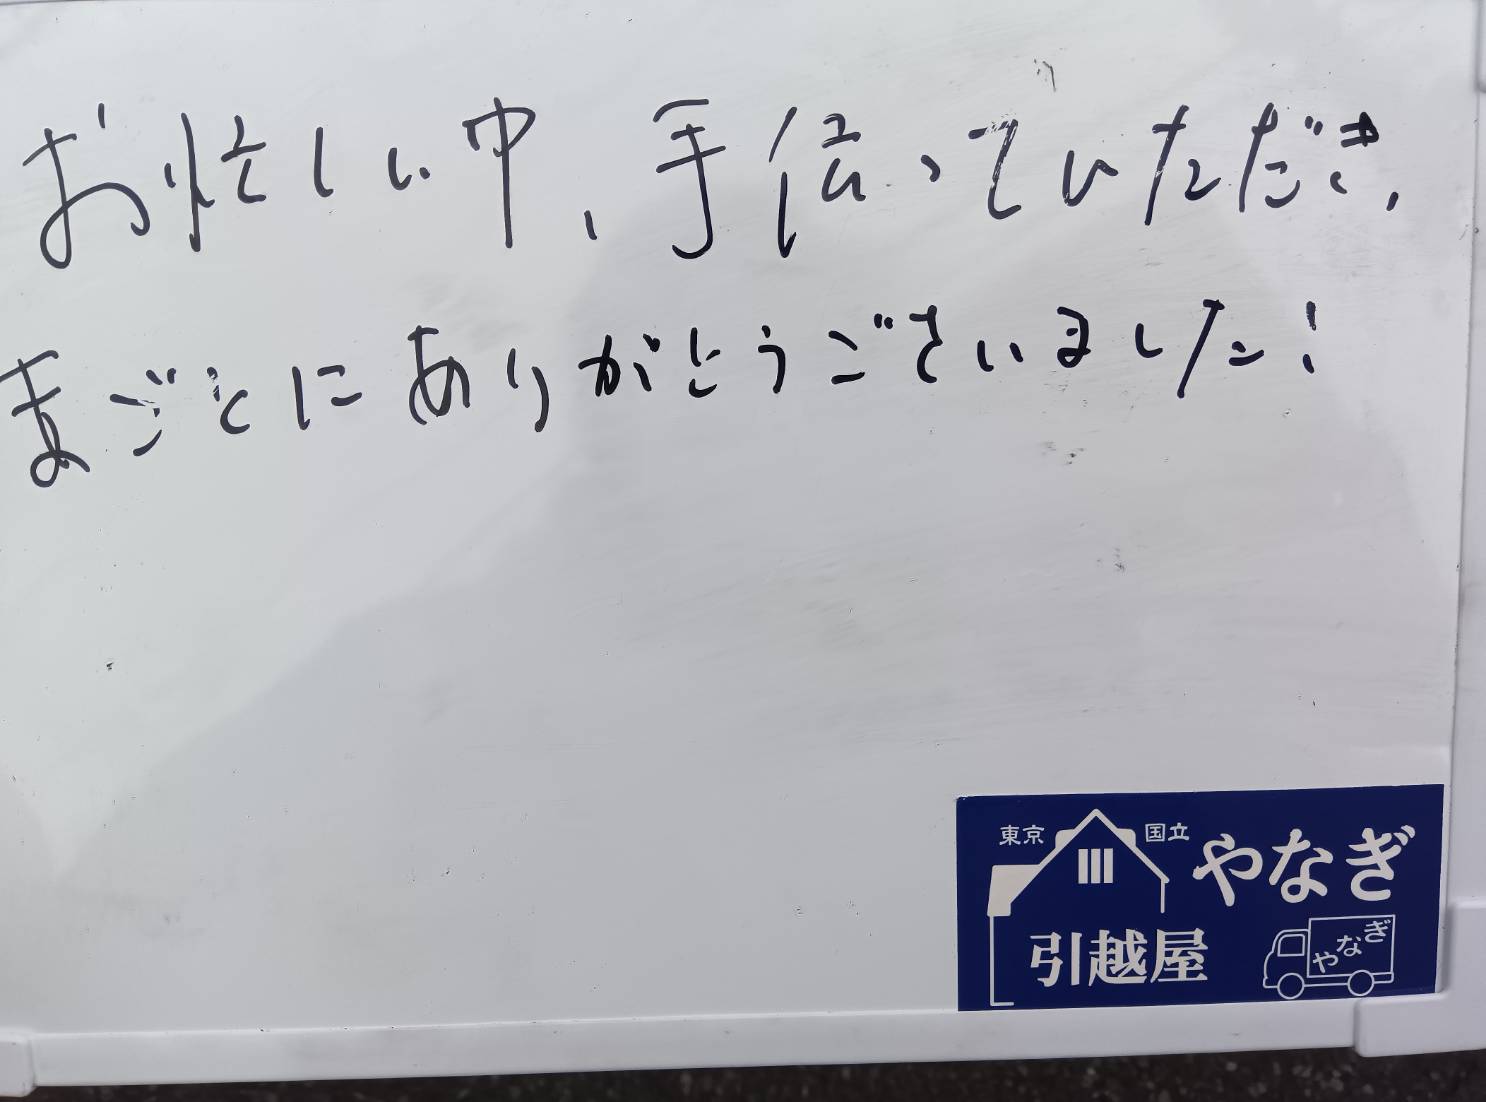 お忙しい中、手伝っていただき、
まごとにありがとうございました!
東京 国立 やなぎ
引越屋
やなぎ